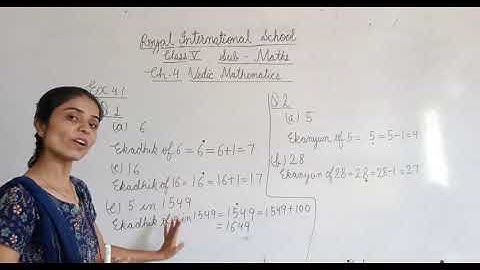 Royal International School
Class V Sub - Maths
Ch. 4 Vedic Mathematics
Ex 4.1
Q 1
(a) 6
Ekadhik of 6 = 6̇ = 6+1 = 7
(c) 16
Ekadhik of 16 = 16̇ = 16+1 = 17
(e) 5 in 1549
Ekadhik of 5 in 1549 = 15̇49 = 1549+100
= 1649
Q 2
(a) 5
Ekanyun of 5 = 5̣ = 5-1 = 4
(b) 28
Ekanyun of 28 = 28̣ = 28-1 = 27